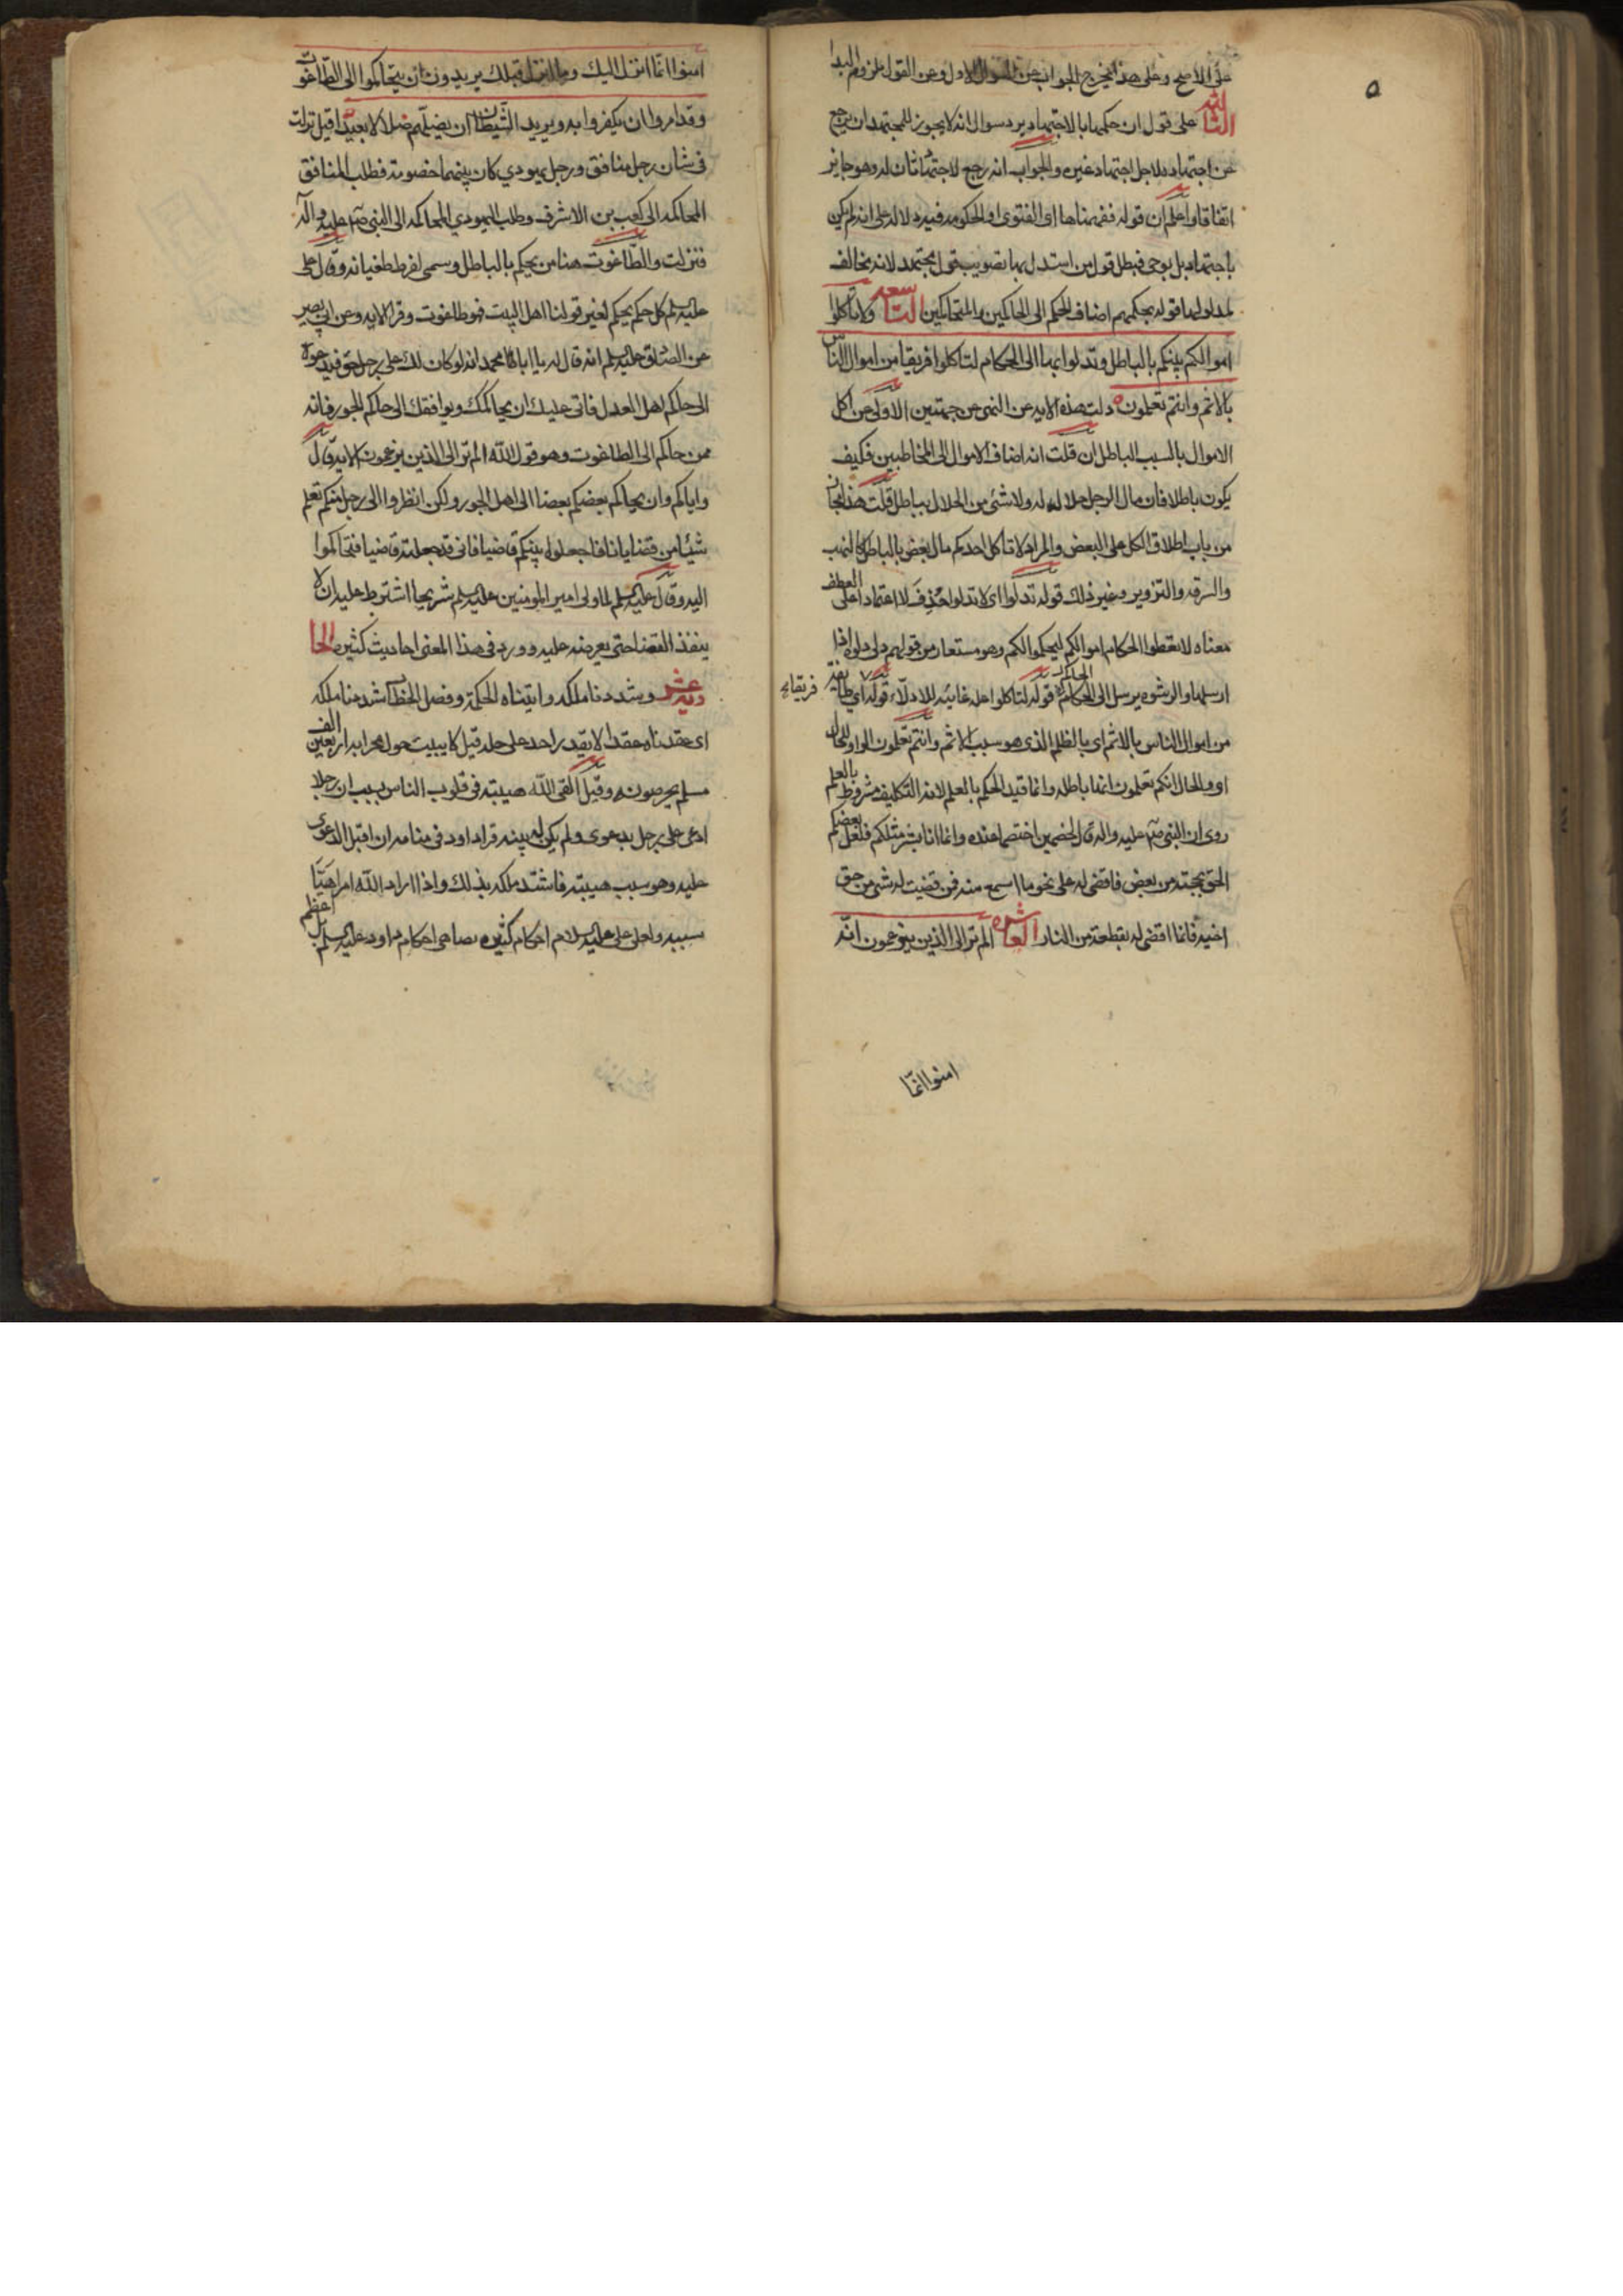 ٥
على الاصح وعلى هذا يخرج الجواب عن السوال الاول وعن القول بلزوم البدا
الثالثه على قول ان حكمها بالاجتهاد يرد سوال انه لا يجوز للمجتهد ان يرجع
عن اجتهاده لاجل اجتهاد غيره والجواب انه رجع لاجتهاد ثان له وهو جايز
اتفاقا واعلم ان قوله ففهمناها اى الفتوى او الحكومه فيه دلاله على انه لم يكن
باجتهاد بل بوحى فبطل قول من استدل بها بتصويب قول مجتهد لانه يخالف
لمدلولها قوله بحكمهم اضاف الحكم الى الحاكمين والمتحاكمين التاسعه ولا تاكلوا
اموالكم بينكم بالباطل وتدلوا بها الى الحكام لتاكلوا فريقا من اموال الناس
بالاثم وانتم تعلمون دلت هذه الايه عن النهى من جهتين الاولى عن اكل
الاموال بالسبب الباطل ان قلت انه اضاف الاموال الى المخاطبين فكيف
يكون باطلا فان مال الرجل حلال له ولا شئ من الحلال بباطل قلت هذا مجاز
من باب اطلاق الكل على البعض والمراد لا تاكل احدكم مال بعض بالباطل كالنهب
والسرقه والتزوير وغير ذلك قوله تدلوا اى لا تدلوا حذف لا اعتمادا على العطف
معناه لا تعطوا الحكام اموالكم ليحكموا لكم وهو مستعار من قولهم دلى دلوه اذا
ارسلها والرشوه يرسل الى الحكام الحاكم قوله لتاكلوا عله غائيه للادلاء قوله اي طايفه
فريقا
من اموال الناس بالاثم اى بالظلم الذى هو سبب الاثم وانتم تعلمون الواو للحال
اى والحال انكم تعلمون انها باطله وانما قيد الحكم بالعلم لانه التكليف مشروط بالعلم
روى ان النبى صلى عليه واله قال لخصمين اختصما عنده وانما انا بشر مثلكم فلعل بعضكم
الحق بحجته من بعض فاقضى له على نحو ما اسمع منه فمن قضيت له بشى من حق
اخيه فانما اقضى له بقطعة من النار العاشره الم تر الى الذين يزعمون انهم
امنوا انما
امنوا انما انزل اليك وما انزل قبلك يريدون ان يتحاكموا الى الطاغوت
وقد امروا ان يكفروا به ويريد الشيطان ان يضلهم ضلالا بعيدا قيل نزلت
فى شان رجل منافق ورجل يهودي كان بينهما خصومة فطلب المنافق
المحاكمه الى كعب بن الاشرف وطلب اليهودي المحاكمه الى النبى صلى عليه واله
فنزلت والطاغوت هنا من يحكم بالباطل وسمى لفرط طغيانه وقال على
عليه السلم كل حكم يحكم لغير قولنا اهل البيت فهو طاغوت وقرا الايه وعن ابى بصير
عن الصادق عليه السلم انه قال له يا ابا محمد انه لو كان لك على رجل حق فدعوته
الى حاكم اهل العدل فاتى عليك ان يحاكمك ويوافقك الى حاكم الجور فانه
ممن حاكم الى الطاغوت وهو قول الله الم تر الى الذين يزعمون الايه وقال
واياكم وان يحاكم بعضكم بعضا الى اهل الجور ولكن انظروا الى رجل منكم تعلم
شيئا من قضايانا فاجعلوه بينكم قاضيا فانى قد جعلته قاضيا فتحاكموا
اليه وقال عليه السلم لما ولى امير المومنين عليه السلم شريحا اشترط عليه ان لا
ينفذ القضا حتى يعرضه عليه وورد فى هذا المعنى احاديث كثيره الحا
ديه عشر وشددنا ملكه واتيناه الحكمة وفصل الخطاب شددنا ملكه
اى عقدناه عقدا لا يقدر احد على حله قيل كان يبيت حول محرابه اربعين الف
مسلم يحرصونه وقيل القى الله هيبته فى قلوب الناس بسبب ان رجلا
ادعى على رجل بدعوى ولم يكن له بينه فراى داود فى منامه ان اقتل المدعى
عليه وهو سبب هيبته فاشتد ملكه بذلك واذا اراد الله امرا هيا
سببه ولعلى عليه السلام احكام كثيره تضاهى احكام داود عليه السلم بل اعظم